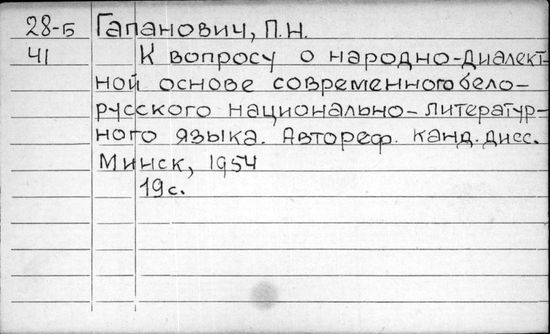 28-Б Гапанович, П.Н.
41 К вопросу о народно-диалект-
ной основе современного бело-
русского национально-литератур-
ного языка. Автореф. канд. дисс.
Минск, 1954
19 с.